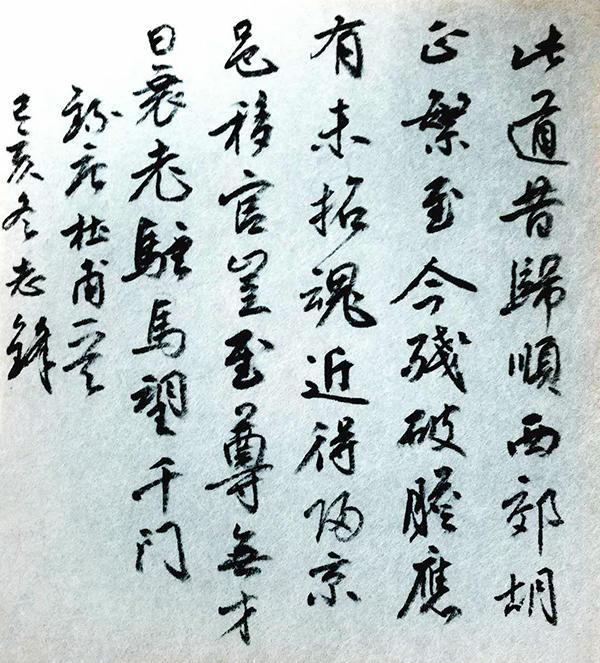 此道昔歸順西郊胡
正繁至今殘破膽應
有未招魂近得归京
邑移官豈至尊無才
日衰老駐馬望千门
錄唐杜甫
己亥冬志鋒